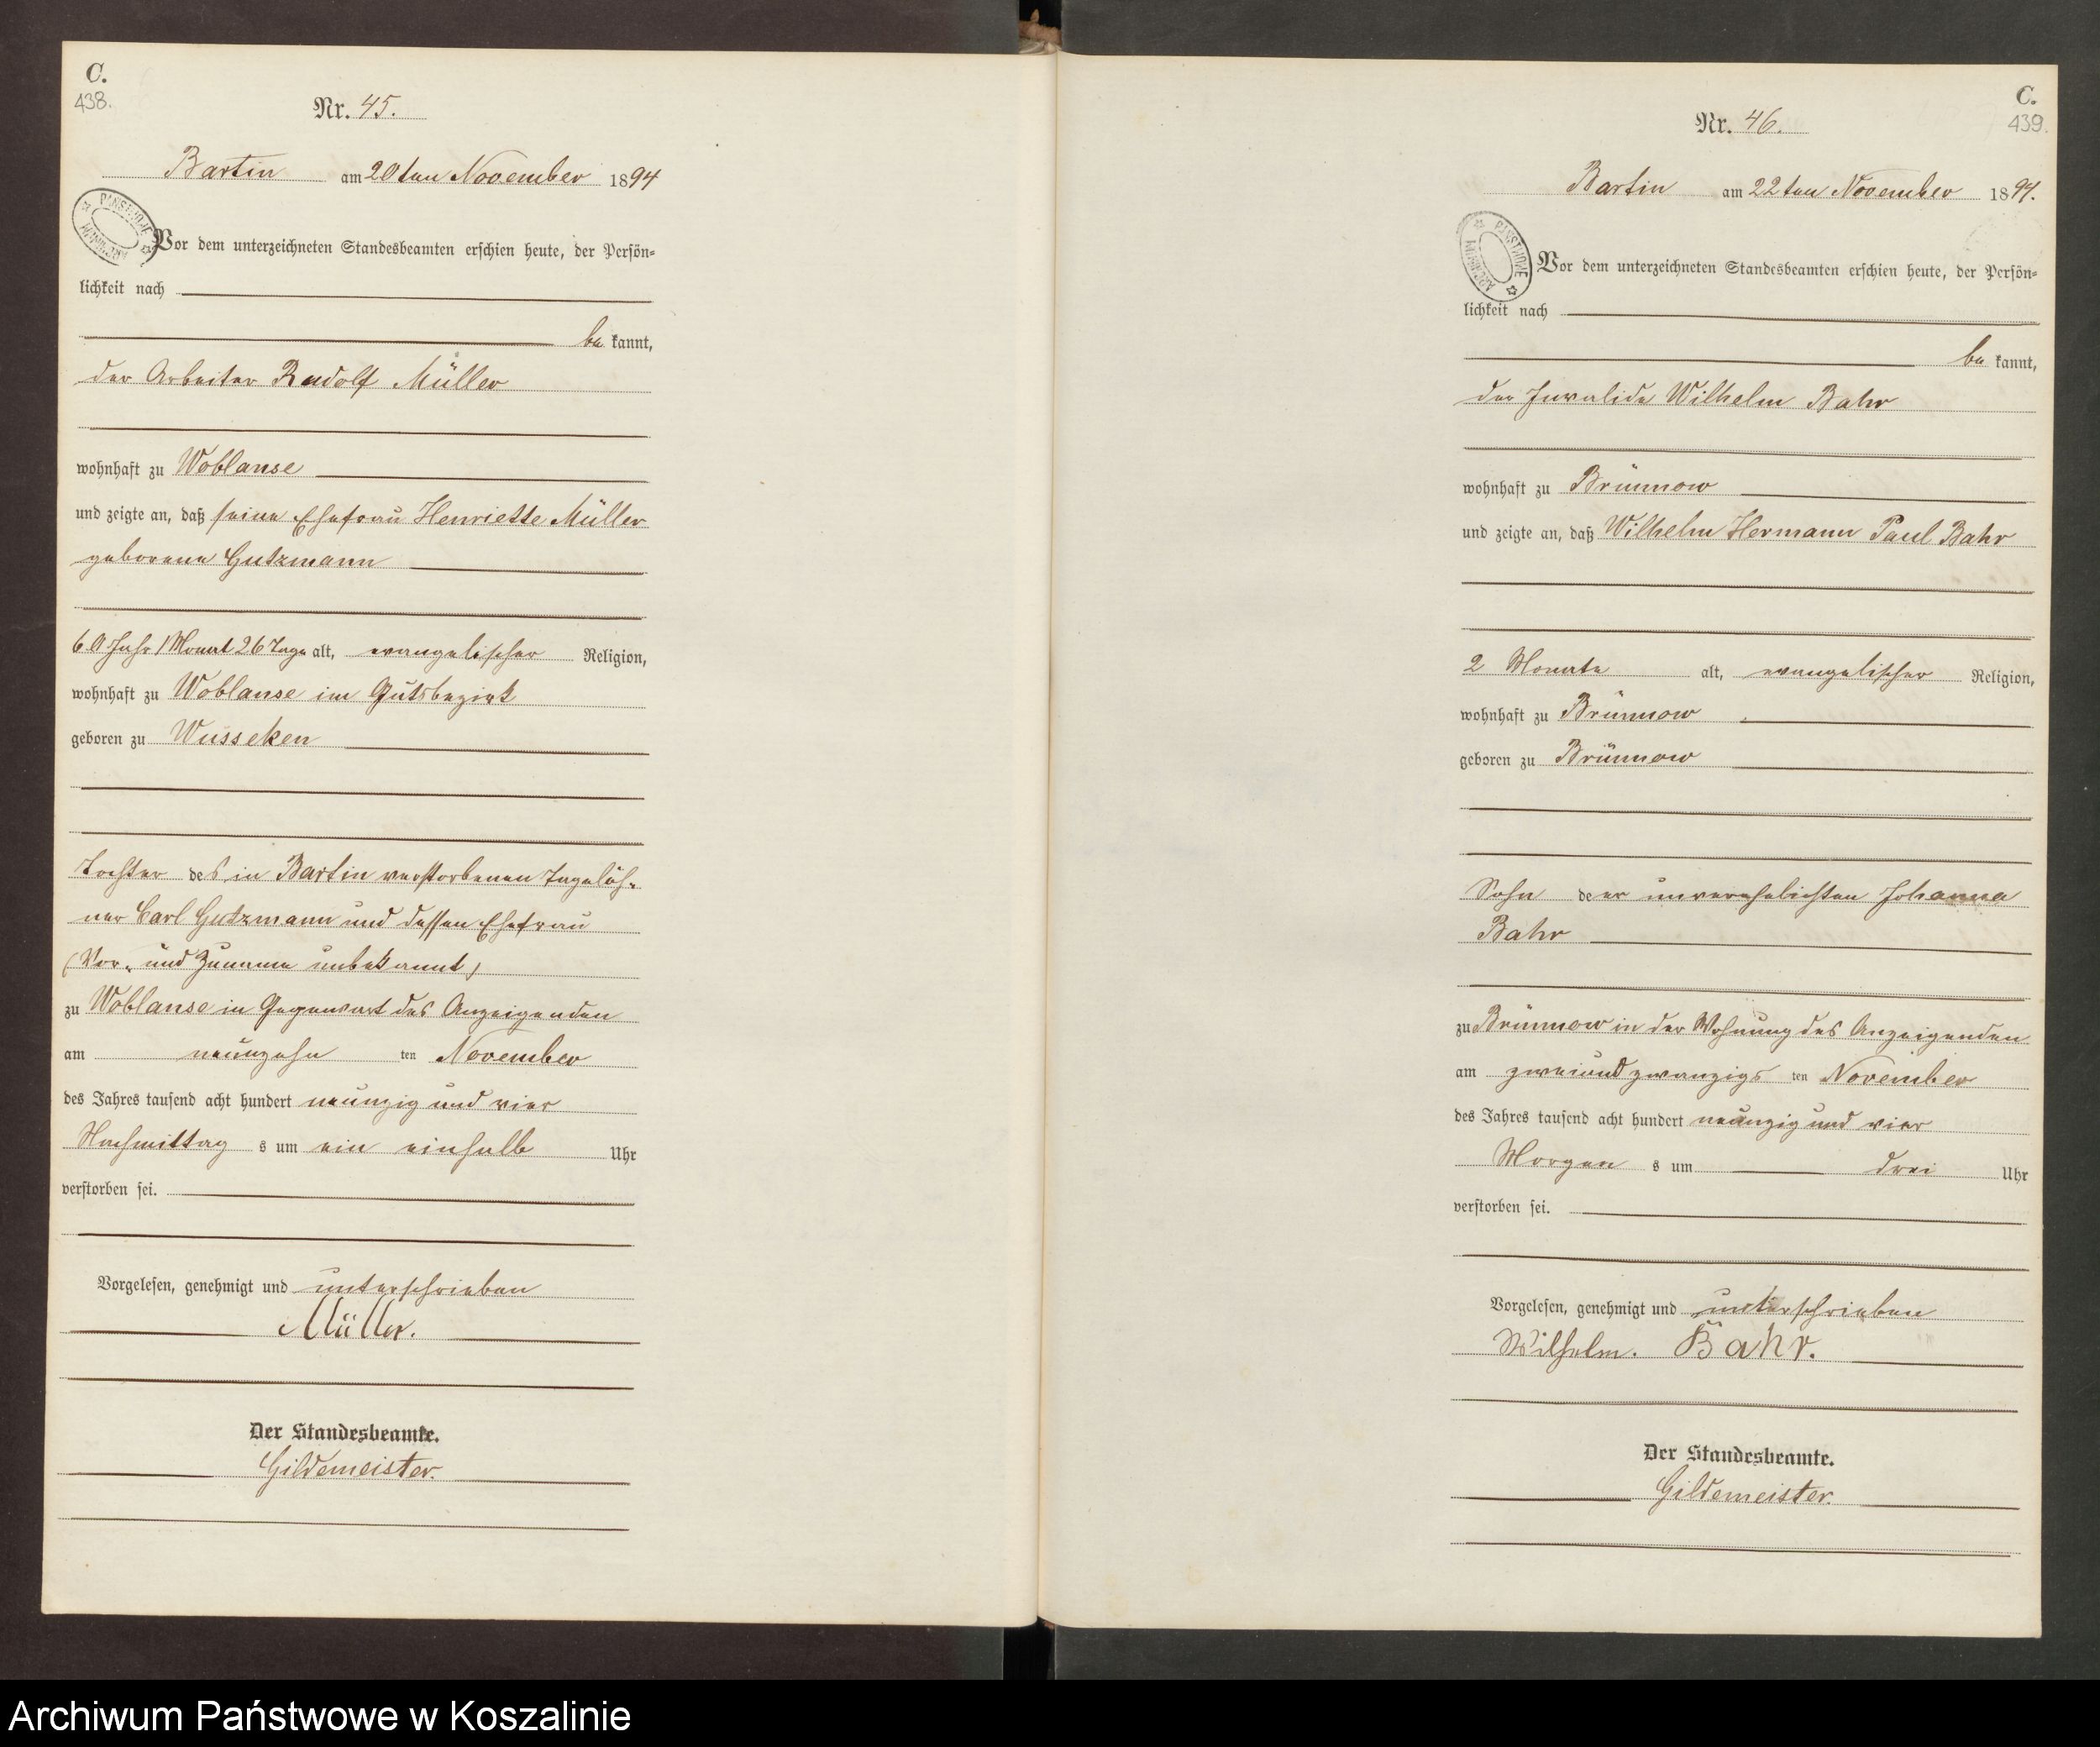 C.
438.
Nr. 45.
Bartin am 20ten November 1894
PAŃSTWOWE ARCHIWUM
Vor dem unterzeichneten Standesbeamten erschien heute, der Persön=
lichkeit nach
be kannt,
der Arbeiter Rudolf Müller
wohnhaft zu Woblanse
und zeigte an, daß seine Ehefrau Henriette Müller
geborene Gutzmann
60 Jahr 1 Monat 26 Tage alt, evangelischer Religion,
wohnhaft zu Woblanse im Gutsbezirk
geboren zu Wusseken
Tochter des in Bartin verstorbenen Tagelöh=
ner Carl Gutzmann und dessen Ehefrau
(Vor= und Zuname unbekannt)
zu Woblanse in Gegenwart des Anzeigenden
am neunzehn ten November
des Jahres tausend acht hundert neunzig und vier
Nachmittag s um ein einhalb Uhr
verstorben sei.
Vorgelesen, genehmigt und unterschrieben
Müller.
Der Standesbeamte.
Gildemeister.
C.
439.
Nr. 46.
Bartin am 22ten November 1894.
PAŃSTWOWE ARCHIWUM
Vor dem unterzeichneten Standesbeamten erschien heute, der Persön=
lichkeit nach
be kannt,
der Invalide Wilhelm Bahr
wohnhaft zu Brünnow
und zeigte an, daß Wilhelm Hermann Paul Bahr
2 Monate alt, evangelischer Religion,
wohnhaft zu Brünnow
geboren zu Brünnow
Sohn der unverehelichten Johanna
Bahr
zu Brünnow in der Wohnung des Anzeigenden
am zweiundzwanzigs ten November
des Jahres tausend acht hundert neunzig und vier
Morgen s um drei Uhr
verstorben sei.
Vorgelesen, genehmigt und unterschrieben
Wilhelm. Bahr.
Der Standesbeamte.
Gildemeister.
Archiwum Państwowe w Koszalinie